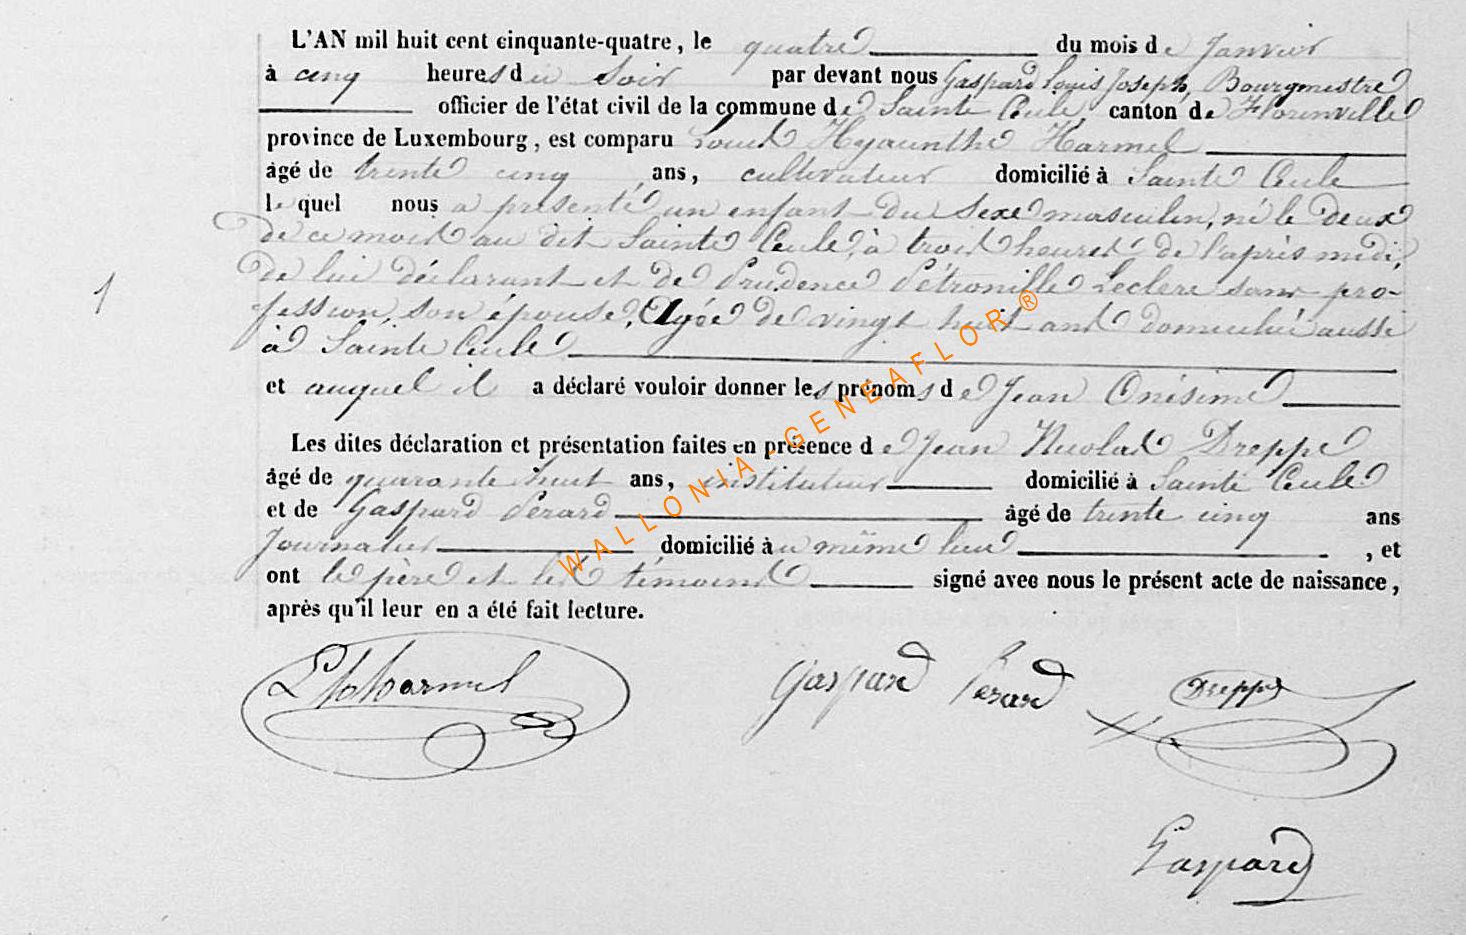 L'AN mil huit cent cinquante-quatre, le quatre du mois de Janvier
à cinq heures du soir par devant nous Gaspard Louis Joseph, Bourgmestre
officier de l'état civil de la commune de Sainte Cécile, canton de Florenville
province de Luxembourg, est comparu Louis Hyacinthe Harmel
âgé de trente cinq ans, cultivateur domicilié à Sainte Cécile
lequel nous a présenté un enfant du sexe masculin, né le deux
de ce mois au dit Sainte Cécile, à trois heures de l'après midi,
de lui déclarant et de Prudence Pétronille Leclere sans pro-
fession, son épouse, Agée de vingt huit ans domiciliée aussi
à Sainte Cécile
et auquel il a déclaré vouloir donner les prénoms de Jean Onésime
Les dites déclaration et présentation faites en présence de Jean Nicolas Dreppe
âgé de quarante huit ans, instituteur domicilié à Sainte Cécile
et de Gaspard Perard âgé de trente cinq ans
Journalier domicilié au même lieu, et
ont le père et les témoins signé avec nous le présent acte de naissance,
après qu'il leur en a été fait lecture.
1
WALLONIA-GENEAFLOR ®
LhHarmel Gaspard Perard Dreppe
Gaspard